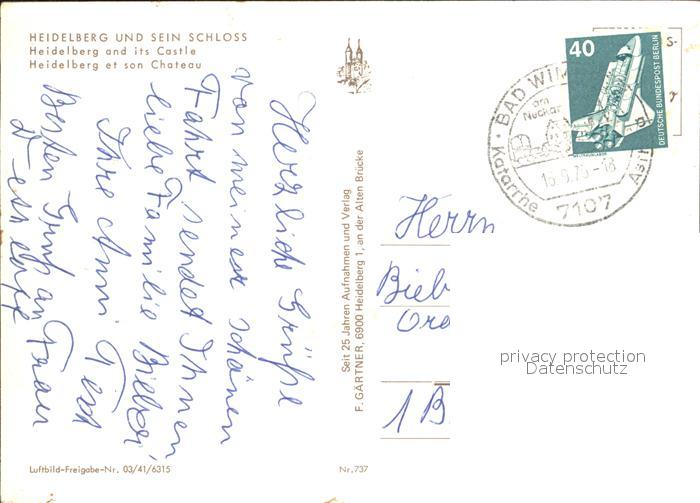 HEIDELBERG UND SEIN SCHLOSS
Heidelberg and its Castle
Heidelberg et son Chateau
Herzliche Grüße
von meiner schönen
Fahrt sendet Ihnen
liebe Familie Bieber
Ihre Anni
Besten Gruß an Frau
Luftbild-Freigabe-Nr. 03/41/6315
Nr. 737
Seit 25 Jahren Aufnahmen und Verlag
F. GÄRTNER, 6900 Heidelberg 1, an der Alten Brücke
40
DEUTSCHE BUNDESPOST BERLIN
WELTRAUMLABOR
BAD WIM
am
Neckar
-18
7107
Katarrhe
Asth
Herrn
Bieb
1 B
privacy protection
Datenschutz